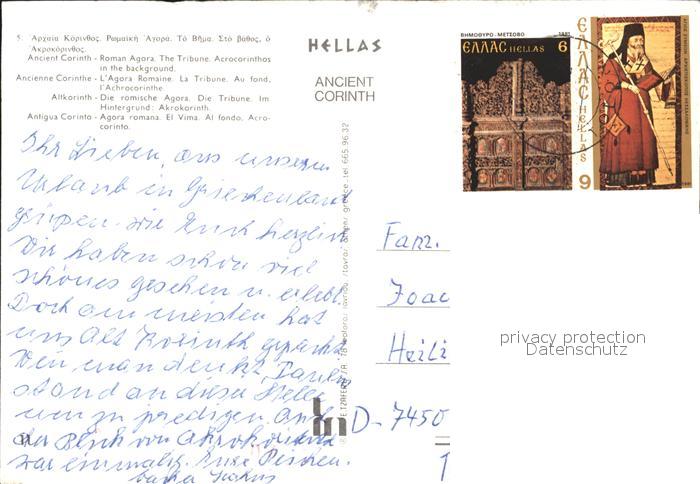 5. Ἀρχαία Κόρινθος. Ρωμαϊκή Ἀγορά. Τό Βῆμα. Στό βάθος, ὁ
Ἀκροκόρινθος.
Ancient Corinth - Roman Agora. The Tribune. Acrocorinthos
in the background.
Ancienne Corinthe - L'Agora Romaine. La Tribune. Au fond,
l'Achrocorinthe.
Altkorinth - Die römische Agora. Die Tribune. Im
Hintergrund: Akrokorinth.
Antigua Corinto - Agora romana. El Vima. Al fondo, Acro-
corinto.
HELLAS
ANCIENT
CORINTH
ΒΗΜΟΘΥΡΟ - ΜΕΤΣΟΒΟ 1981
ΕΛΛΑC HELLAS 6
ΕΛΛΑC HELLAS
9
Ihr Lieben, aus unserem
Urlaub in Griechenland
grüßen wir Euch herzlich
Wir haben schon viel
schönes gesehen u. erlebt.
Doch am meisten hat
uns Alt Korinth gepackt
Wenn man denkt, Paulus
stand an dieser Stelle
um zu predigen. Auch
der Blick von Akrokorinth
war einmalig. Eure
tel. 665.96.32
Fam.
Joac
Heili
D-7450
1
privacy protection
Datenschutz